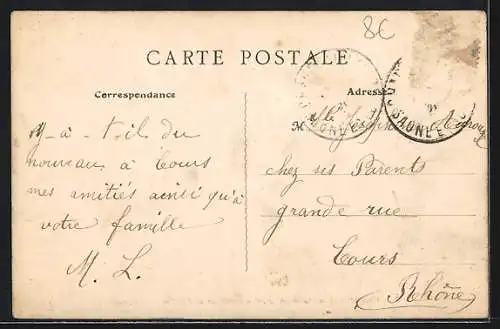 8€
CARTE POSTALE
Correspondance
Adresse
M
SAONE
SAONE
y-a-t-il du
nouveau à Cours
mes amitiés ainsi qu'à
votre famille
M. L.
chez ses Parents
grande rue
Cours
Rhône